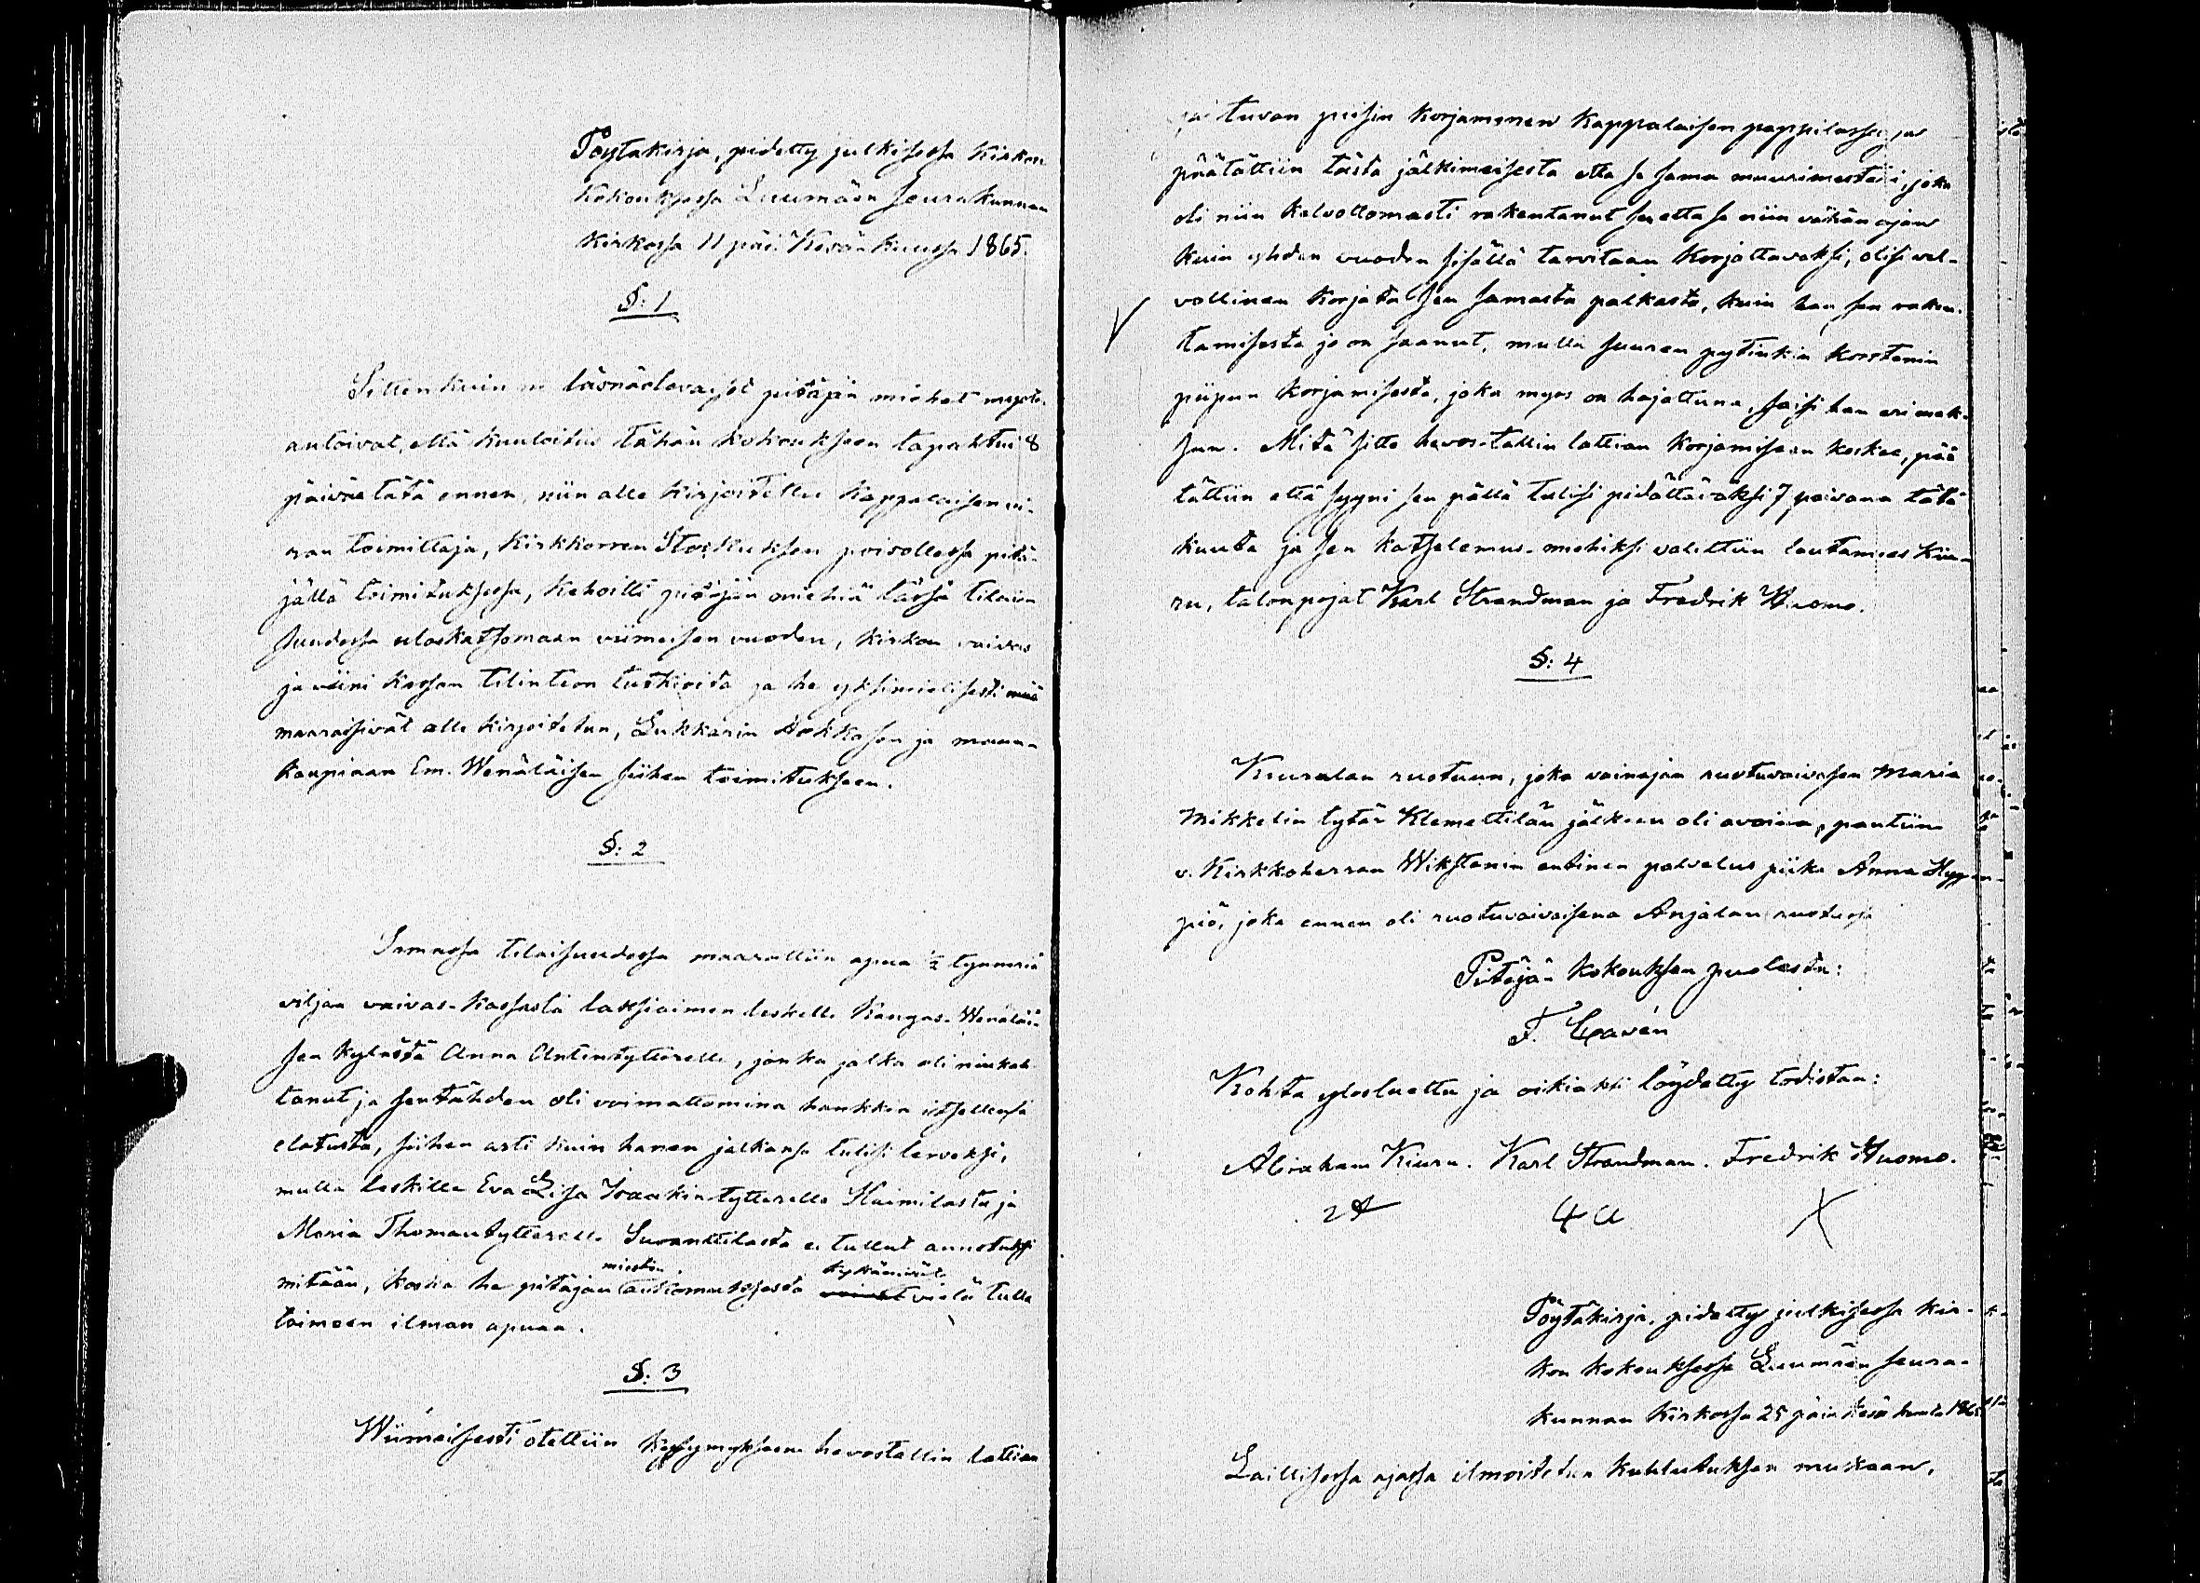 Pöytäkirja, pidetty julkisessa Kirkon
Kokouksessa Luumäen seurakunnan
Kirkossa 11 päi. Kesän kuussa 1865.
§: 1
Sitten kuin läsnäolevaiset pitäjän miehet myöto-
antoivat, että kuuloitus tähän kokoukseen tapahtui 8
päivää tätä ennen, niin alle kirjoitettu Kappalaisen vi-
ran toimittaja, Kirkkoherran poisollessa pitä-
jällä toimituksessa, kehoitti pitäjän miehiä tässä tilai-
suudessa uloskatsomaan viimeisen vuoden, kirkon vaivas
ja viini kassan tilinteon tutkioita ja he yksimielisesti
määräisivät alle kirjoitetun, Lukkarin Hokkasen ja maan-
kaupiaan Em. Wenäläisen siihen toimitukseen.
§: 2
Samassa tilaisuudessa määrättiin apua ½ tynnyriä
viljaa vaivas-kassasta lapsivaimon leskelle Kangas-Wenäläi-
sen kylästä Anna Antintyttärelle, jonka jalka oli niukah-
tanut ja sentähden oli voimattomina hankkia itsellensä
elatusta, siihen asti kuin hänen jalkansa tulisi terveksi,
mutta leskille Eva Lisa Isaakintyttärelle Haimilasta ja
Maria Thomantyttärelle Suoanttilasta ei tullut annetuksi
mitään, koska he pitäjän miesten tutkinnuksesta kykänisivät vielä tulla
toimeen ilman apuaa.
§: 3
Wiimeisesti otettiin kysymykseen hevostallin lattian
ja tuvan piisin korjaminen Kappalaisen pappilassa, ja
päätättiin tästä jälkimäisestä että se sama muurimestari, joka
oli niin kelvottomasti rakentanut sen että se niin vähän ajan
kuin yhden vuoden sisällä tarvitaan korjattavaksi, olisi vel-
vollinen korjata sen samasta palkasta, kuin hän sen raken-
tamisesta jo on saanut, mutta suuren pytinkin korstenin
piipun korjamisesta, joka myös on hajottuna, saisi hän eri mak-
sun. Mitä sitte hevos-tallin lattian korjamiseen koskee, pää
tättiin että syyni sen päällä tulisi pidättäväksi 7 päivänä tätä
kuuta ja sen katselemus-miehiksi valittiin lautamies Kiu-
ru, talonpojat Karl Strandman ja Fredrik Huomo.
§: 4
Kuuralan ruotuun, joka vainajan ruotuvaivasen Maria
Mikkelin tytär Klemettilän jälkeen oli avoina, pantiin
v. Kirkkoherran Wikstenin entinen palvelus piika Anna Hyp-
piö, joka ennen oli ruotuvaivaisena Anjalan ruotussa
Pitäjän kokouksen puolesta:
F. Cavén
Kohta ylösluettu ja oikiaksi löydetty todistan:
Abraham Kiuru. Karl Strandman. Fredrik Huomo.
Pöytäkirja, pidetty julkisessa kir-
kon kokouksessa Luumäen seura-
kunnan Kirkossa 25 päiv. Kesä kuuta 1865
Laillisessa ajassa ilmoitetun kuulutuksen mukaan,